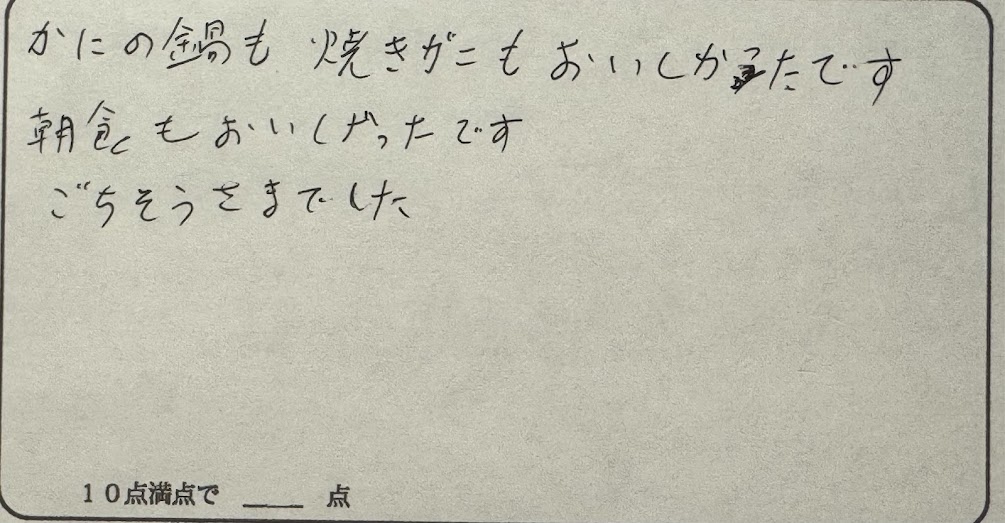 かにの鍋も 焼きがにも おいしかったです
朝食もおいしかったです
ごちそうさまでした
10点満点で ____ 点